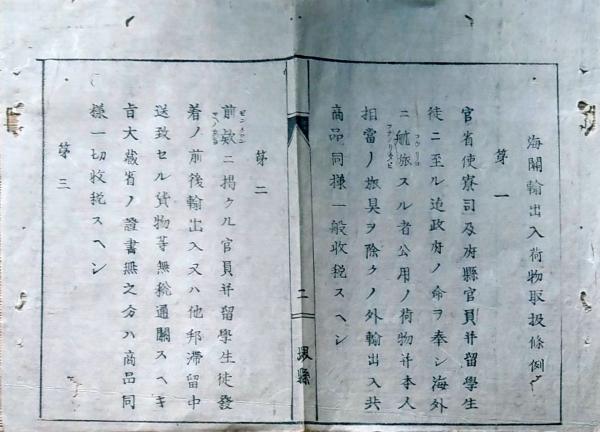 海關輸出入荷物取扱條例
第一
官省使寮司及府縣官員并留學生
徒ニ至ル迠政府ノ命ヲ奉シ海外
ニ航旅スル者公用ノ荷物并本人
相當ノ旅具ヲ除クノ外輸出入共
商品同様一般收税スヘシ
二
堺縣
第二
前欵ニ揭クル官員并留學生徒發
着ノ前後輸出入又ハ他邦滯留中
送致セル貨物等無税通關スヘキ
旨大蔵省ノ證書無之分ハ商品同
様一切收税スヘシ
第三